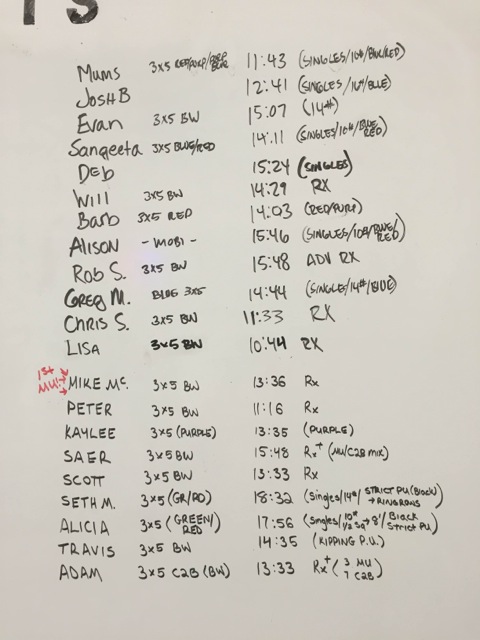 Mums 3x5 RED/PURP/ 11:43 (SINGLES/10#/BLUE/RED)
JOSH B 12:41 (SINGLES/10#/BLUE)
Evan 3x5 BW 15:07 (14#)
Sangeeta 3x5 BLUE/RED 14:11 (SINGLES/10#/BLUE/RED)
DEB 15:24 (SINGLES)
WILL 3x5 BW 14:29 RX
Barb 3x5 RED 14:03 (RED/PURP)
ALISON - MOBI - 15:46 (SINGLES/10#/BLUE/RED)
ROB S. 3x5 BW 15:48 ADV RX
GREG M. BLUE 3x5 14:44 (SINGLES/14#/BLUE)
CHRIS S. 3x5 BW 11:33 RX
LISA 3x5 BW 10:44 RX
1st MU!! → MIKE MC. 3x5 BW 13:36 Rx
PETER 3x5 BW 11:16 Rx
KAYLEE 3x5 (PURPLE) 13:35 (PURPLE)
SAER 3x5 BW 15:48 Rx+ (MU/C2B mix)
SCOTT 3x5 BW 13:33 Rx
SETH M. 3x5 (GR/RD) 18:32 (Singles/14#/ STRICT PU (Black) → RING ROWS
ALICIA 3x5 (GREEN/RED) 17:56 (Singles/10# 1/2 SQ → 8'/ Black Strict PU)
TRAVIS 3x5 BW 14:35 (KIPPING P.U.)
ADAM 3x5 C2B (BW) 13:33 Rx+ (3 MU 7 C2B)